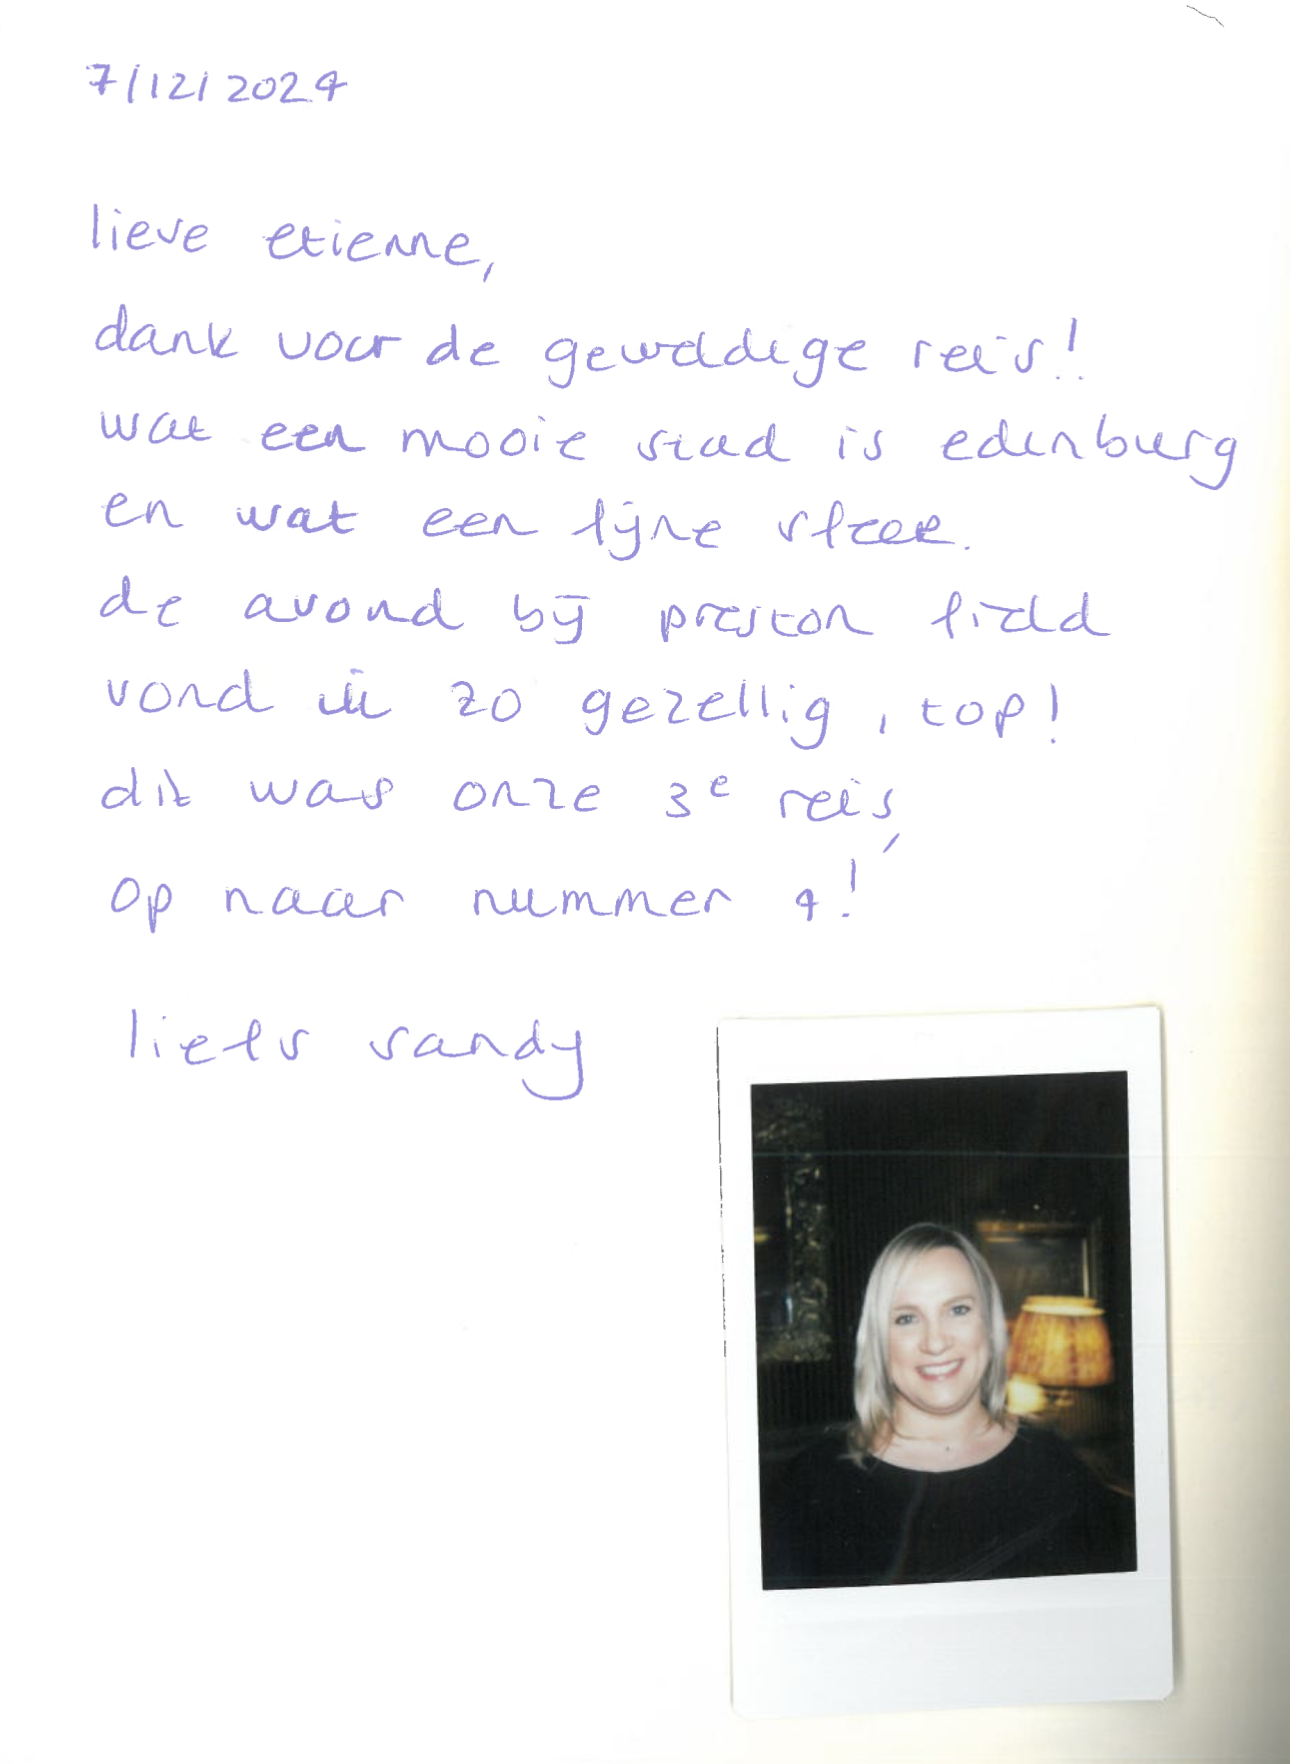 7/12/2024
lieve etienne,
dank voor de geweldige reis!!
wat een mooie stad is edenburg
en wat een fijne sfeer.
de avond bij preston field
vond ik zo gezellig, top!
dit was onze 3e reis,
op naar nummer 4!
liefs sandy